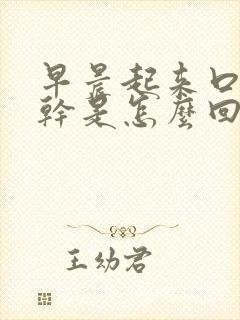 早晨起来口
幹是怎麼回
王幼君